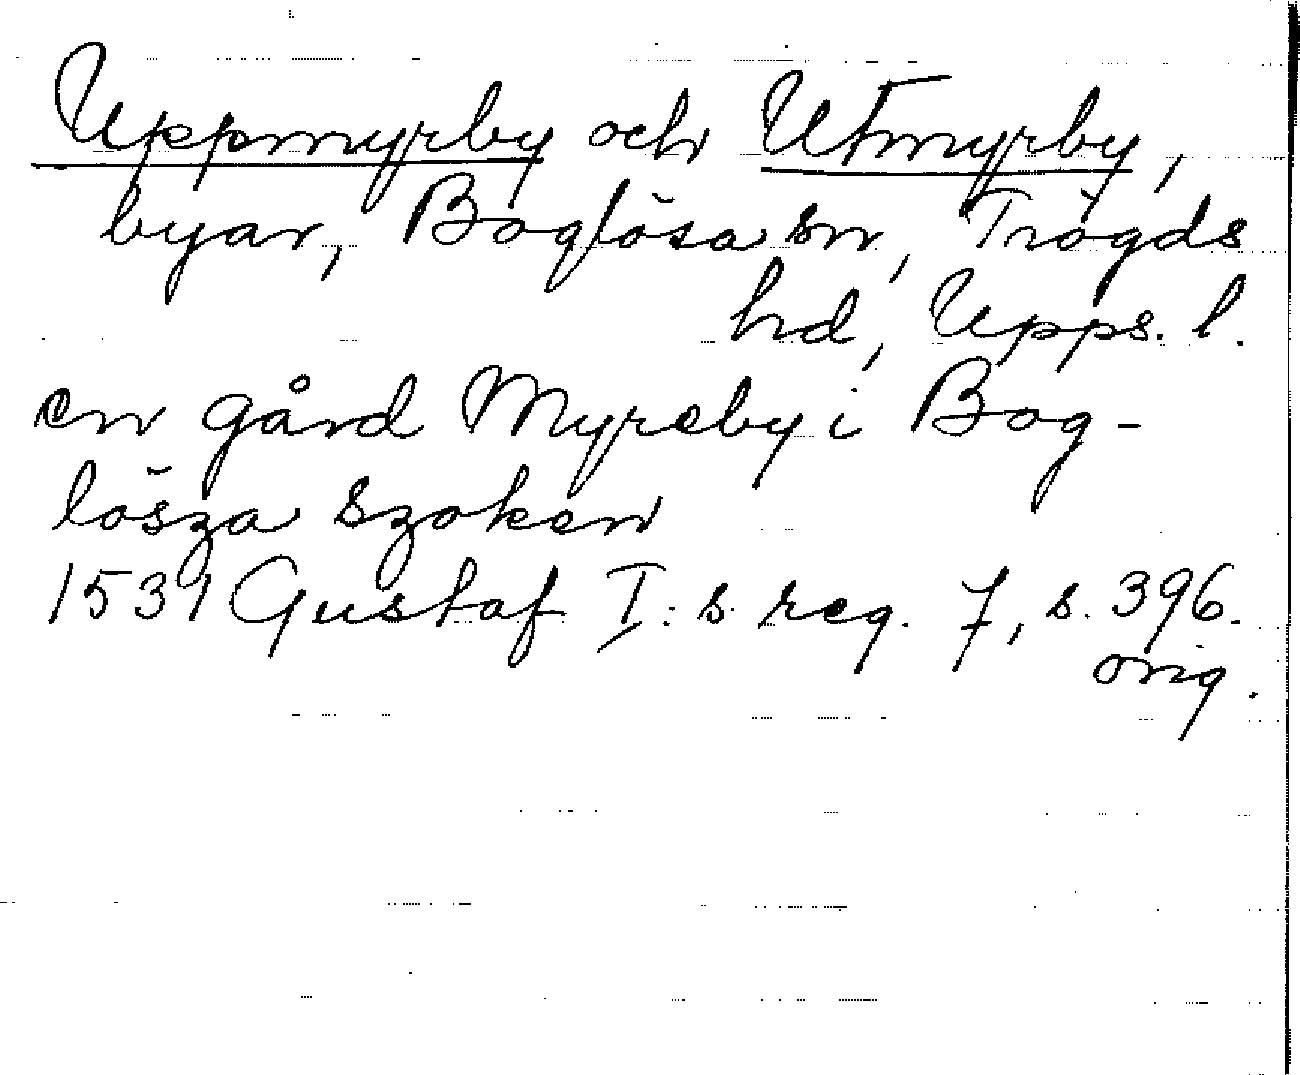 Uppmyrby och Utmyrby,
byar, Boglösa sn, Trögds
hd, Upps. l.
en gård Myreby i Bog-
lösza szoken
1531 Gustaf I:s reg. 7, s. 396.
orig.